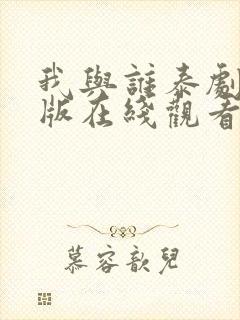 我與誰泰劇
版在綫觀看
慕容歆兒